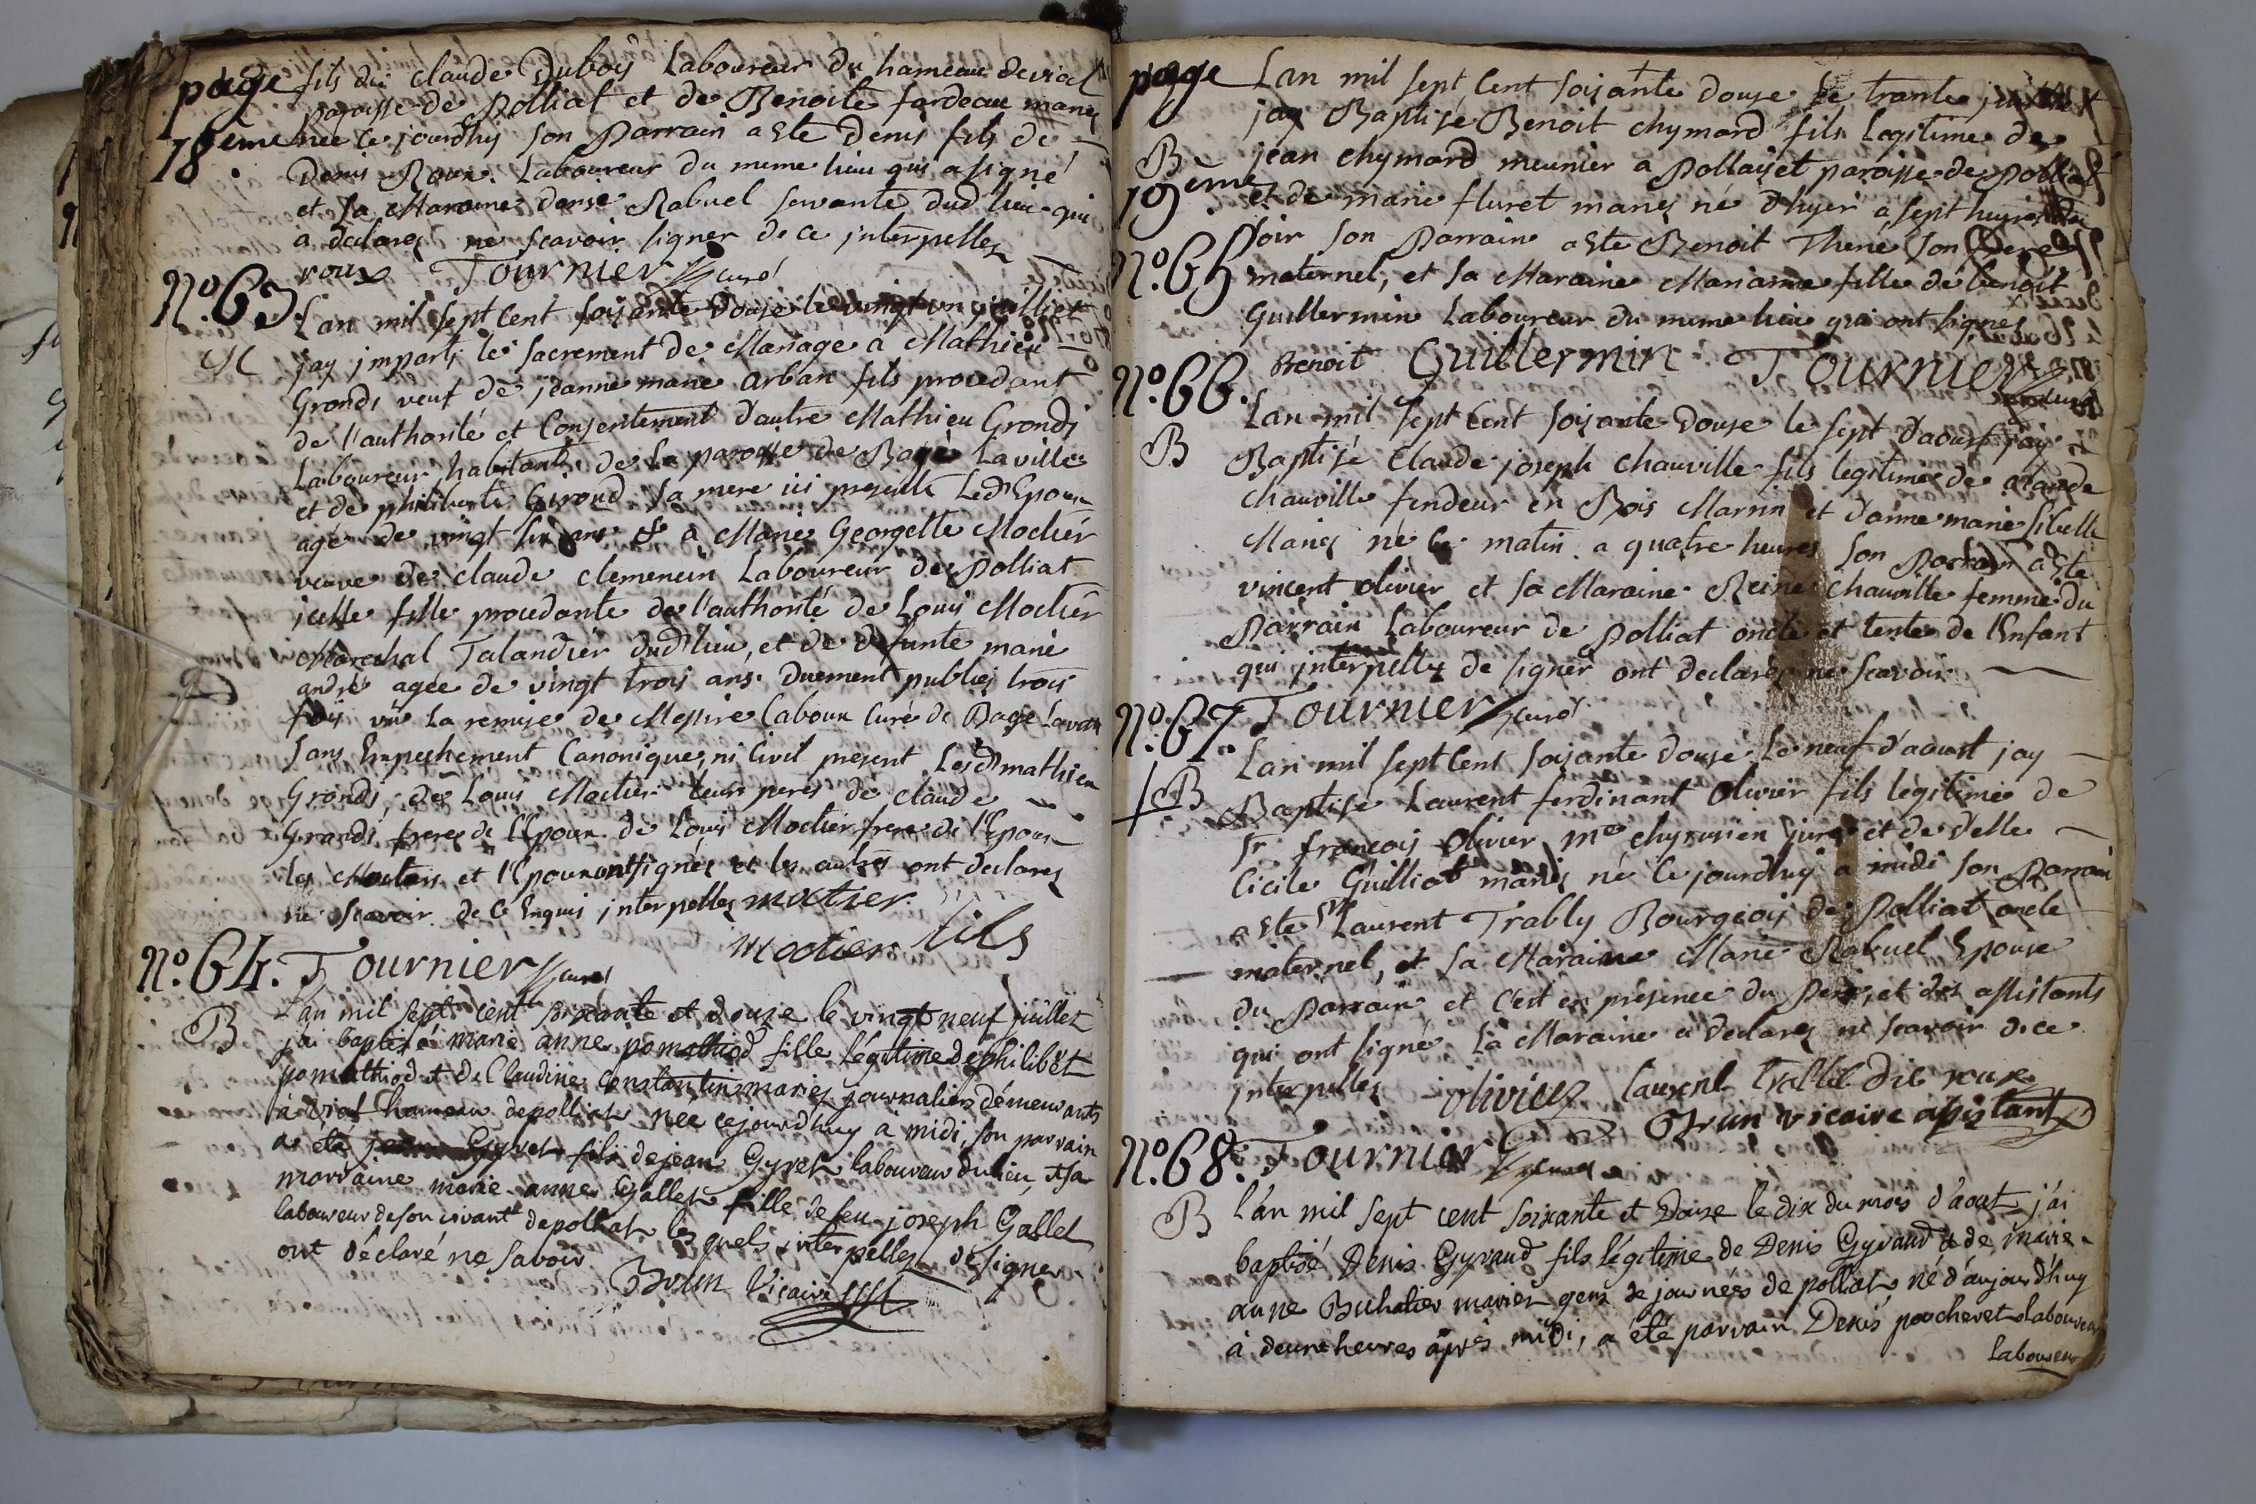 page
18eme.
fils du claude Duboy Laboureur du hameau de vial
paroisse de Polliat et de Benoite fardeau mariez
née ce jourdhuy son Parrain a este denis fils de
Denis Roux Laboureur du meme lieu qui a signé
et sa Maraine denise Rabuel servante dud lieu qui
a declarez ne scavoir signer de ce jnterpellez
roux Tournier curé
n.o 63.
M
Lan mil sept Cent soisante Douse le vingt un juilliet
jay jmparti le sacrement de Mariage a Mathieu
Grondi veuf de jeanne marie arban fils procedant
de l'authorité et Consentement d'autre Mathieu Grondi
Laboureur habitant de la paroisse de Bagé La ville
et de philiberte Girond sa mere ici presente Led Epoux
agé de vingt six ans & a Marie Georgette Moctier
veuve de claude clemencin Laboureur de Polliat
jcelle fille procedante de l'authorité de Louis Moctier
Marechal Talandier dud lieu, et de defunte marie
andré agée de vingt trois ans. Duement publiez trois
fois vu la remise de Messire Caboux Curé de Bagé La ville
sans Empechement Canonique, ni Civil present Lesd mathieu
Grondi, de Louis Moctier leurs peres de claude
Grandi frere de l'Epoux de Louis Moctier frere de l'Epouse
les Moctiers et l'Epoux ont signés et les autres ont declarez
ne scavoir de ce Enquis jnterpellez moctier
moctier fils
n.o 64. Tournier curé
B
L'an mil sept cent soixante et douze le vingt neuf juillet
j'ai baptisé marie anne pomathiod fille légitime de philibet
pomathiod et de Claudine Constantin mariez journaliers démeurants
à vial hameau de polliat née cejourdhuy à midi, son parrain
a été Gyret fils de jean Gyret laboureur du lieu, et sa
marraine marie anne Gallet fille de feu joseph Gallet
laboureur de son vivant de polliat les quels interpellez de signer
ont déclaré ne savoir
Brun Vicaire
page
19eme
n.o 65
B
Lan mil sept Cent soisante Douse le trante juilliet
jay Baptisé Benoit chymard fils Legitime de
jean chymard meunier a Pollaiset paroisse de Polliat
et de marie fluret mariez né d'hyer a sept heures du
soir son Parrain a este Benoit Thené son
maternel, et sa Maraine Marianne fille de benoit
Guillermin Laboureur du meme lieu qui ont signez
Benoit Guillermin Tournier curé
n.o 66.
B
Lan mil sept Cent soisante Douse le sept d'aoust jay
Baptisé Claude joseph chauville fils legitime de claude
chauville fendeur en Bois Marrin et d'anne marie sibelle
Mariez né ce matin a quatre heures son Parrain a Este
vincent olivier et sa Maraine Reine chauville femme du
Parrain Laboureur de Polliat oncle et tente de l'Enfant
qui jnterpellez de signer ont declarez ne scavoir
n.o 67. Tournier curé
B
Lan mil sept Cent soisante douse Le neuf d'aoust jay
Baptisé Laurent ferdinant Olivier fils légitime de
Sr françois Olivier me chyrurien juré et de delle
Cicile Guilliot mariez né Ce jourdhuy a midi son Parrain
a este Sr Laurent Trably Bourgeois de Polliat oncle
maternel, et sa Maraine Marie Rabuel Epouse
du Parrain, et c'est en présence du Pere, et des assistants
qui ont signé. La Maraine a declarez ne scavoir de ce
jnterpellez olivier laurent trablit dit roux
Brun vicaire assistant
n.o 68. Tournier curé
B
L'an mil sept cent soixante et Douze le dix du mois d'août j'ai
baptisé Denis Gyraud fils légitime de Denis Gyraud et de marie
anne Buhatier mariez gens de journées de polliat né d'aujourd'huy
à deux heures après midi, a été parrain Denis pocheret laboureur
laboureur